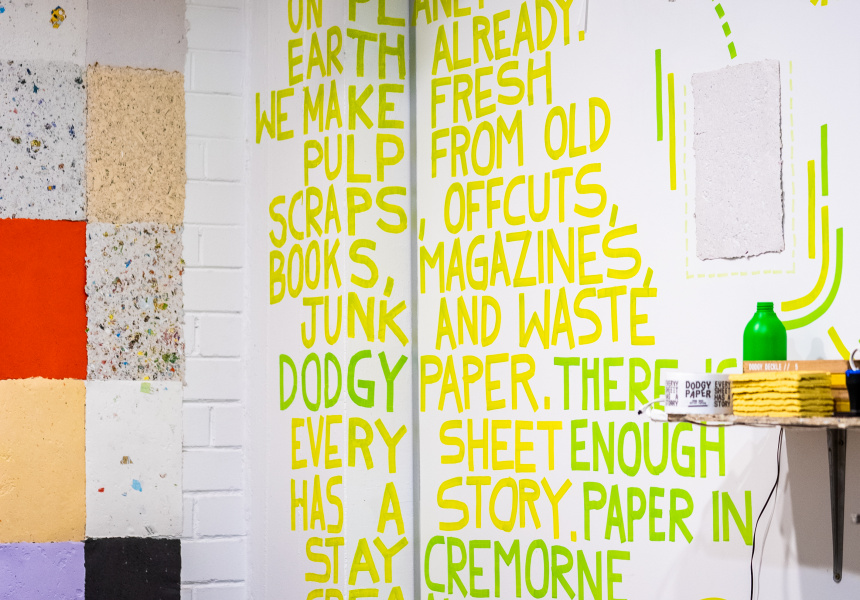 ON PLANET
EARTH ALREADY.
WE MAKE FRESH
PULP FROM OLD
SCRAPS, OFFCUTS,
BOOKS, MAGAZINES,
JUNK AND WASTE
DODGY PAPER. THERE IS
EVERY SHEET ENOUGH
HAS A STORY. PAPER IN
STAY CREMORNE
DODGY
PAPER
EVERY
SHEET
HAS A
STORY
DODGY DECKLE //